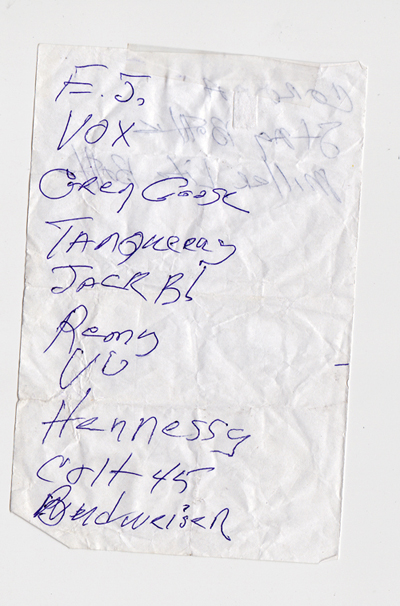 E.J.
VOX
Grey Goose
TANQueray
JACK Bl
Remy
VO
Hennessy
Colt 45
Budweiser